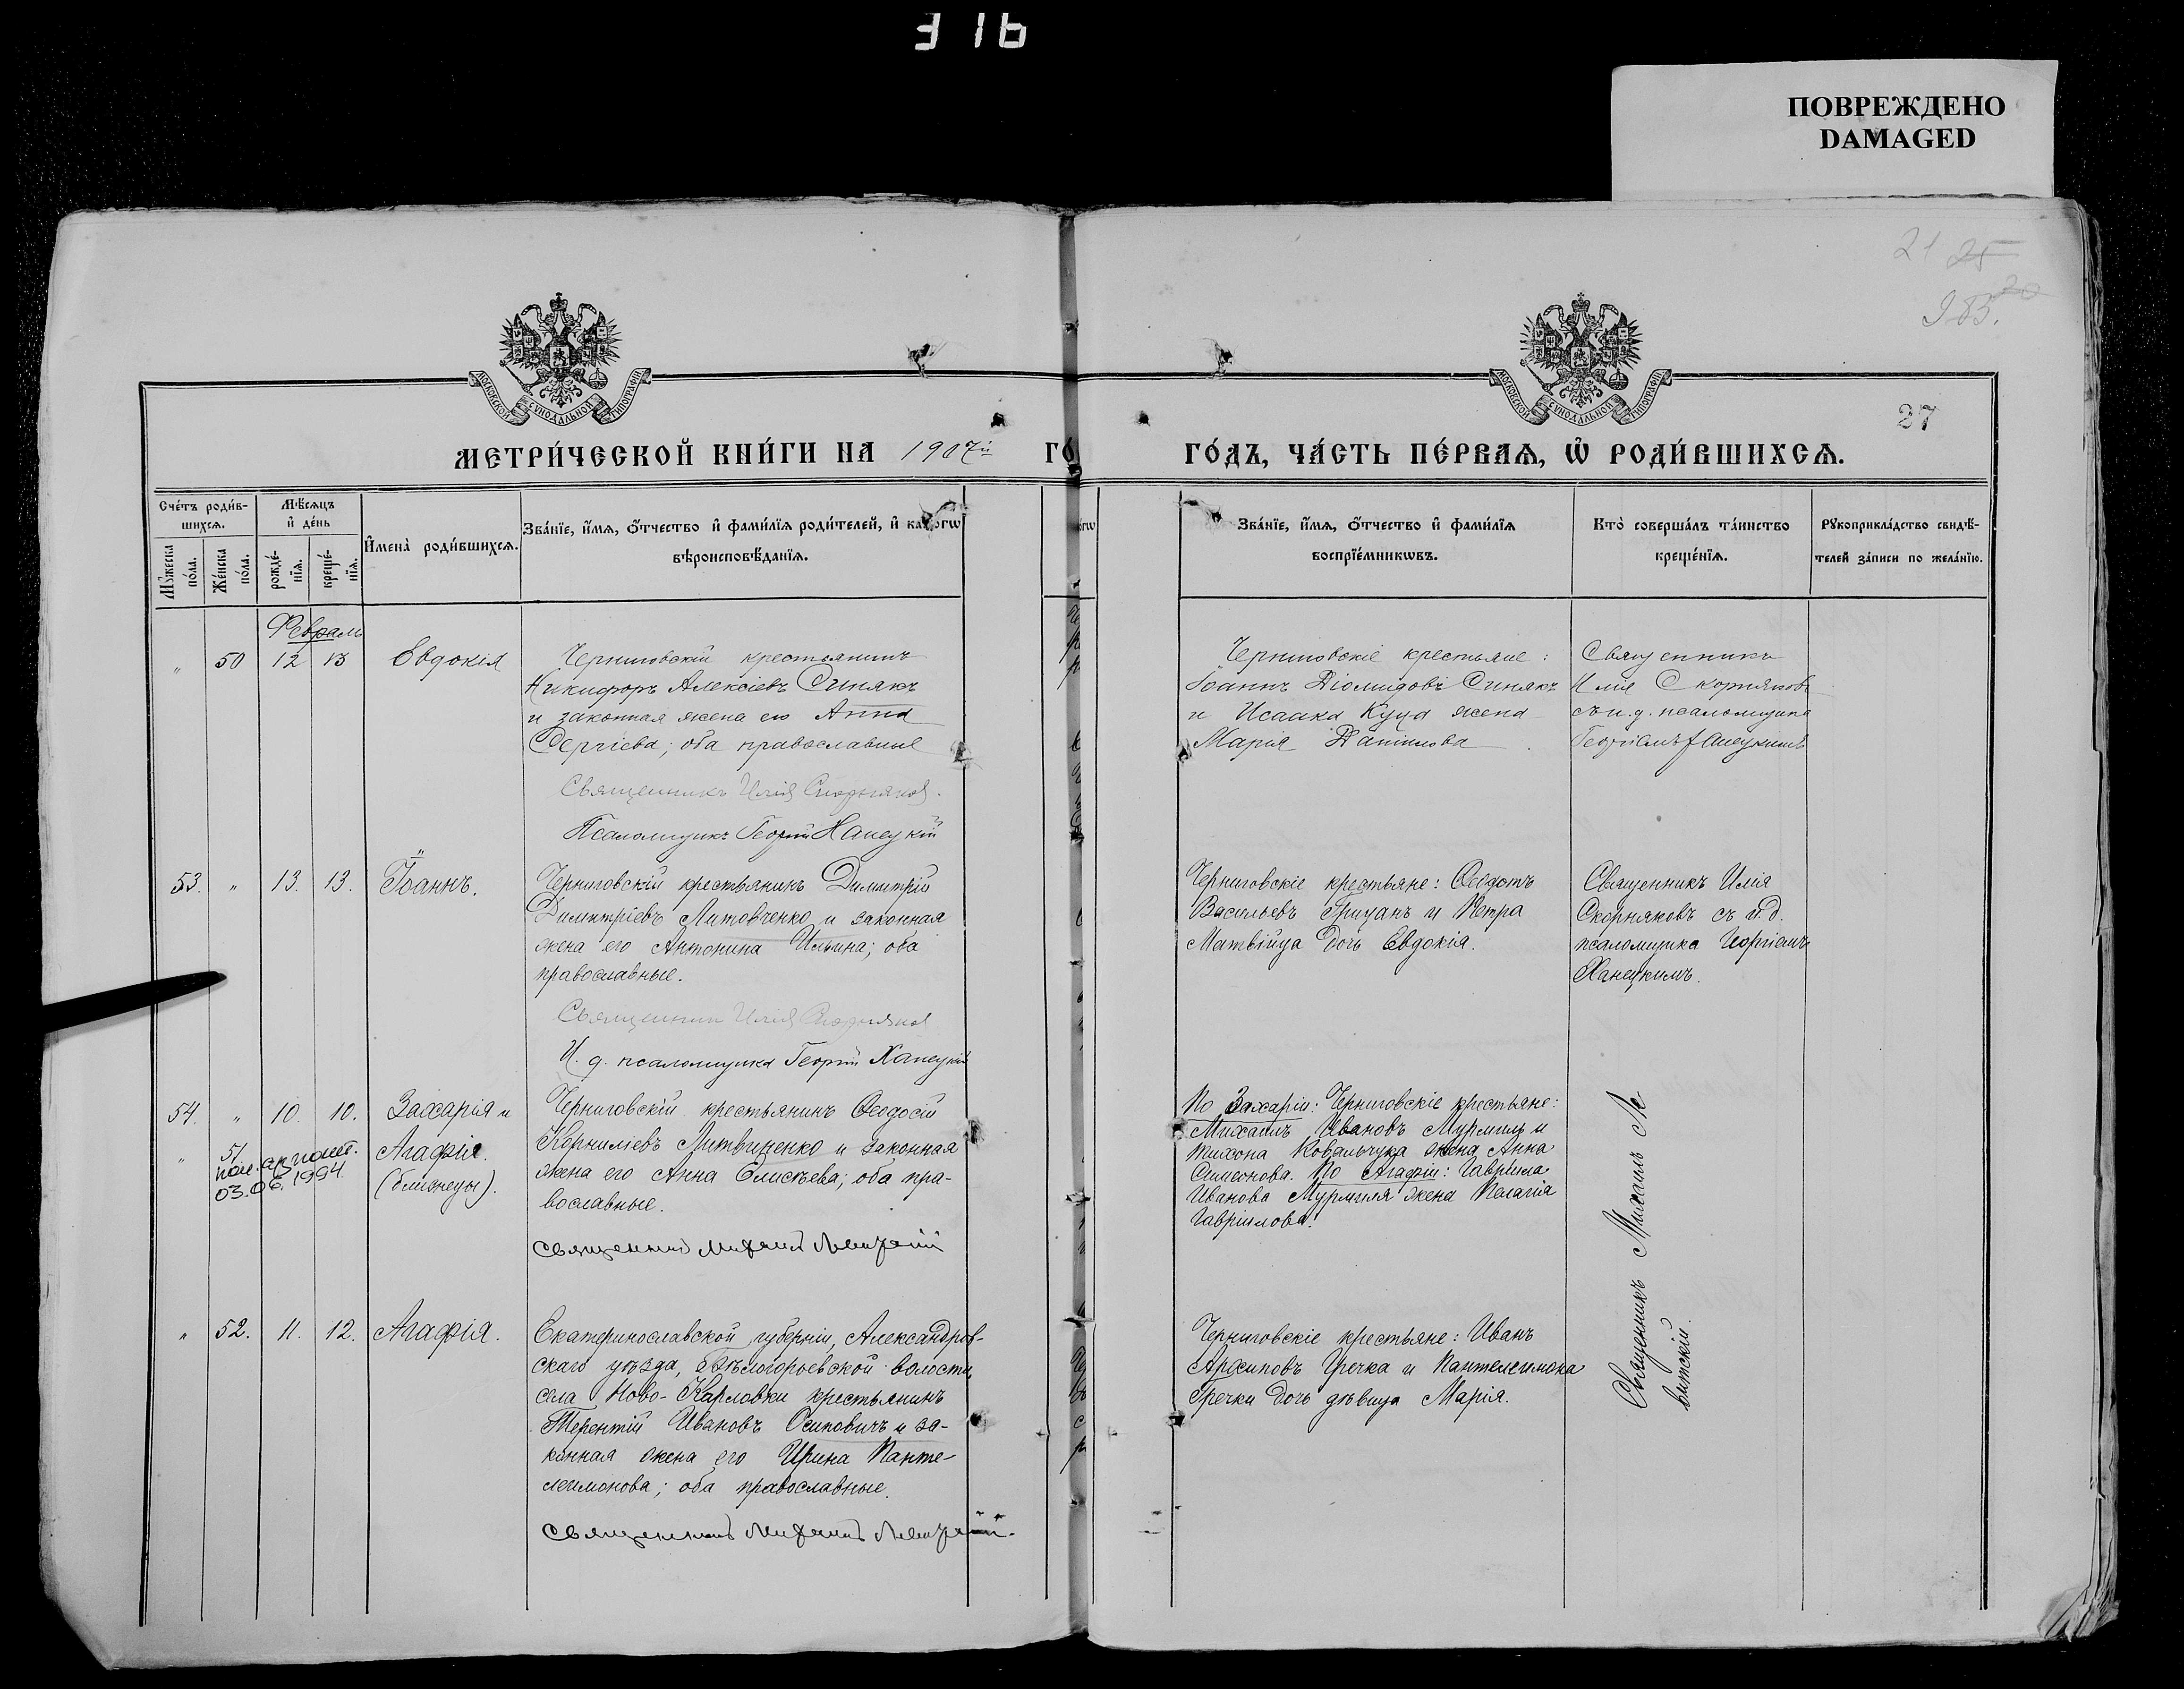 316
ПОВРЕЖДЕНО
DAMAGED
21 25
20
983.
27
МОСКОВСКОЙ СѴНОДАЛЬНОЙ ТИПОГРАФІИ
МОСКОВСКОЙ СѴНОДАЛЬНОЙ ТИПОГРАФІИ
МЕТРИ́ЧЕСКОЙ КНИ́ГИ НА 1907й ГО
ГО́ДЪ, ЧА́СТЬ ПЕ́РВАѦ, Ѡ҆ РОДИ́ВШИХСѦ.
Сче́тъ роди́в-
шихсѧ.
Мꙋ́жеска по́ла.
Же́нска по́ла.
Мѣ́сѧцъ
и҆ де́нь
рожде́-
нїѧ.
креще́-
нїѧ.
И҆мена̀ роди́вшихсѧ.
Зва́нїе, и҆́мѧ, ѻ҆́тчество и҆ фами́лїѧ роди́телей, и҆ како́гѡ
вѣроисповѣ́данїѧ.
Зва́нїе, и҆́мѧ, ѻ҆́тчество и҆ фами́лїѧ
воспрїе́мникѡвъ.
Кто̀ соверша́лъ та́инство
креще́нїѧ.
Рꙋкоприкла́дство свидѣ́-
телей за́писи по жела́нїю.
Февраль
" 50 12 13 Евдокія
Черниговскій крестьянинъ
Никифоръ Алексіевъ Синякъ
и законная жена его Анна
Сергіева; оба православные
Священникъ Илія Скорняковъ.
Псаломщикъ Георгій Ханецкій
Черниговскіе крестьяне:
Іоаннъ Діомидовъ Синякъ
и Исаака Куца жена
Марія Даніилова
Священникъ
Илія Скорняковъ
съ и. д. псаломщика
Георгіемъ Ханецкимъ
53. " 13. 13. Іоаннъ.
Черниговскій крестьянинъ Димитрій
Димитріевъ Литовченко и законная
жена его Антонина Ильина; оба
православные.
Священникъ Илія Скорняковъ
И. д. псаломщика Георгій Ханецкій
Черниговскіе крестьяне: Ѳеодотъ
Васильевъ Грицанъ и Петра
Матвійца дочь Евдокія.
Священникъ Илія
Скорняковъ съ и. д.
псаломщика Георгіемъ
Ханецкимъ.
54. " 10. 10. Захарія и
" 51 Агафія.
03.06.1994
(близнецы).
Черниговскій крестьянинъ Ѳеодосій
Корниліевъ Литвиненко и законная
жена его Анна Елисѣева; оба пра-
вославные.
Священникъ Михаилъ
По Захаріи: Черниговскіе крестьяне:
Михаилъ Ивановъ Мурмиль и
Тихона Ковальчука жена Анна
Симеонова. По Агафіи: Гавріила
Иванова Мурмиля жена Пелагія
Гавріилова.
" 52. 11. 12. Агафія.
Екатеринославской губерніи, Александров-
скаго уѣзда, Бѣлогорьевской волости,
села Ново-Карловки крестьянинъ
Терентій Ивановъ Осиповичъ и за-
конная жена его Ирина Панте-
леимонова; оба православные.
Священникъ Михаилъ
Черниговскіе крестьяне: Иванъ
Архиповъ Гречка и Пантелеимона
Гречки дочь дѣвица Марія.
Священникъ Михаилъ Ле
витскій.